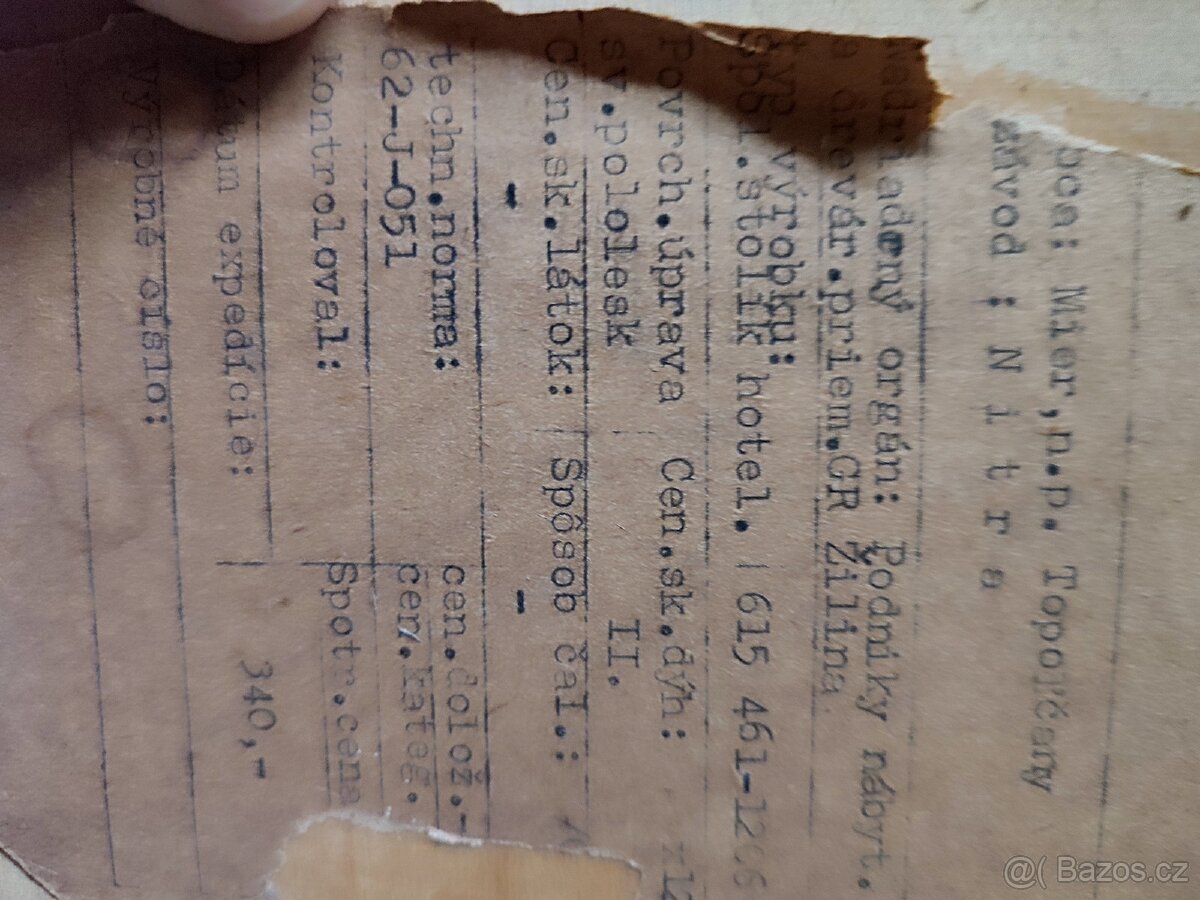 bca: Mier,n.p. Topoľčany
závod : N i t r a
nadriadený orgán: Podniky nábyt.
a drevár.priem.GR Žilina
typ výrobku:
spol.stolík hotel. 615 461-1206
Povrch.úprava Cen.sk.dýh:
sv.pololesk II.
Cen.sk.látok: Spôsob čal.:
- -
techn.norma: cen.dolož.-
62-J-051 cen.kateg.
Kontroloval: Spotr.cena
Dátum expedície: 340,-
výrobné číslo:
@( Bazos.cz